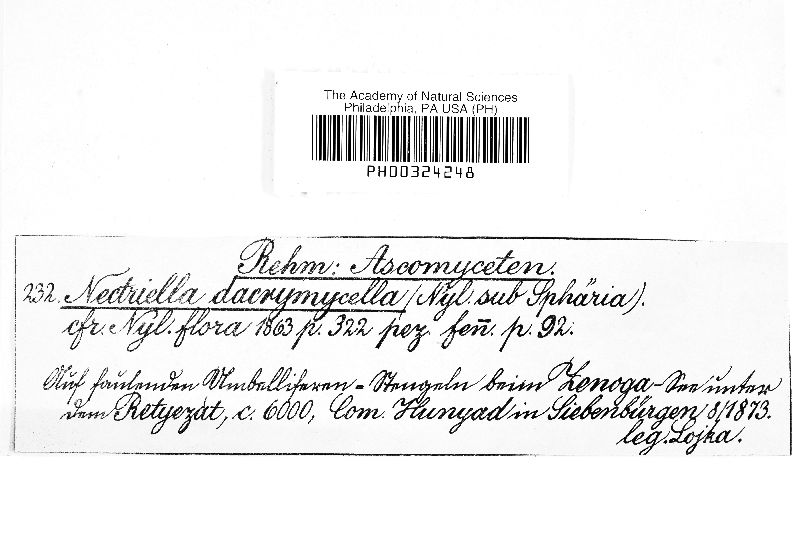 The Academy of Natural Sciences
Philadelphia, PA USA (PH)
PH00324248
Rehm: Ascomyceten.
232. Nectriella dacrymycella (Nyl. sub Sphäria).
cfr. Nyl. flora 1863 p. 322 pez. fen̄. p. 92.
Auf faulenden Umbelliferen-Stengeln beim Zenoga-See unter
dem Retyezát, c. 6000, Com. Hunyad in Siebenbürgen 8/1873.
leg. Lojka.